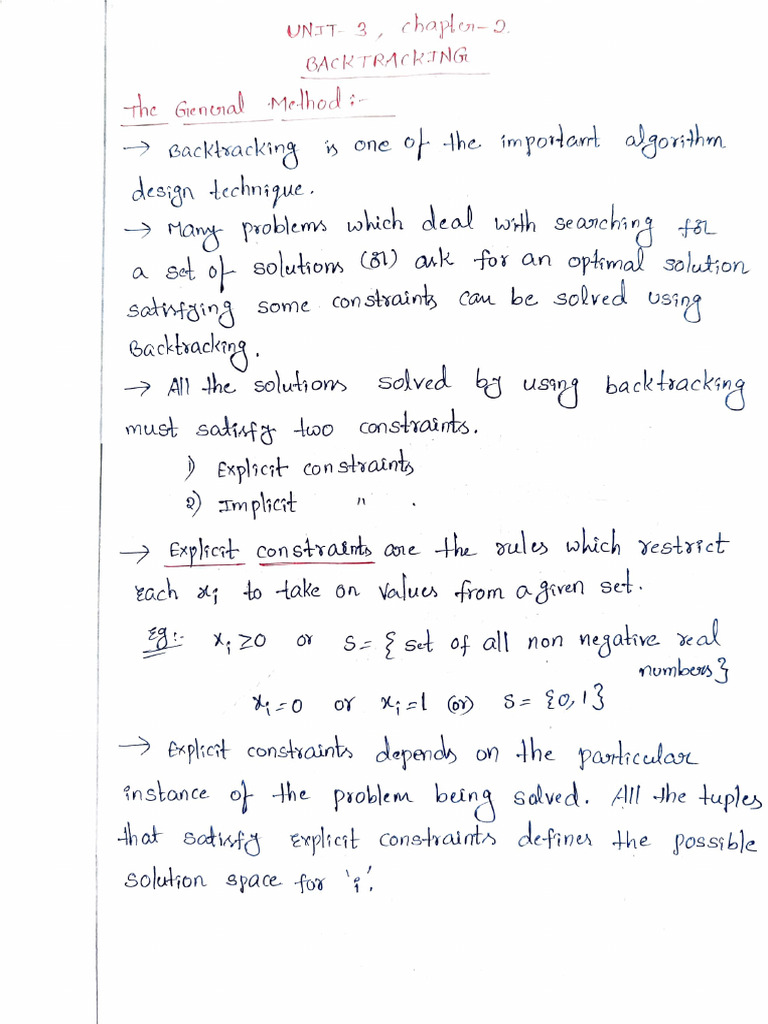 UNIT-3, Chapter-2.
BACKTRACKING
The General Method:-
→ Backtracking is one of the important algorithm
design technique.
→ Many problems which deal with searching for
a set of solutions (or) ask for an optimal solution
satisfying some constraints can be solved using
Backtracking.
→ All the solutions solved by using backtracking
must satisfy two constraints.
1) Explicit constraints
2) Implicit " .
→ Explicit constraints are the rules which restrict
each xi to take on values from a given set.
Eg:- xi ≥ 0 or S = { set of all non negative real
numbers}
xi = 0 or xi = 1 (or) S = {0,1}
→ Explicit constraints depends on the particular
instance of the problem being solved. All the tuples
that satisfy Explicit constraints defines the possible
solution space for 'i'.